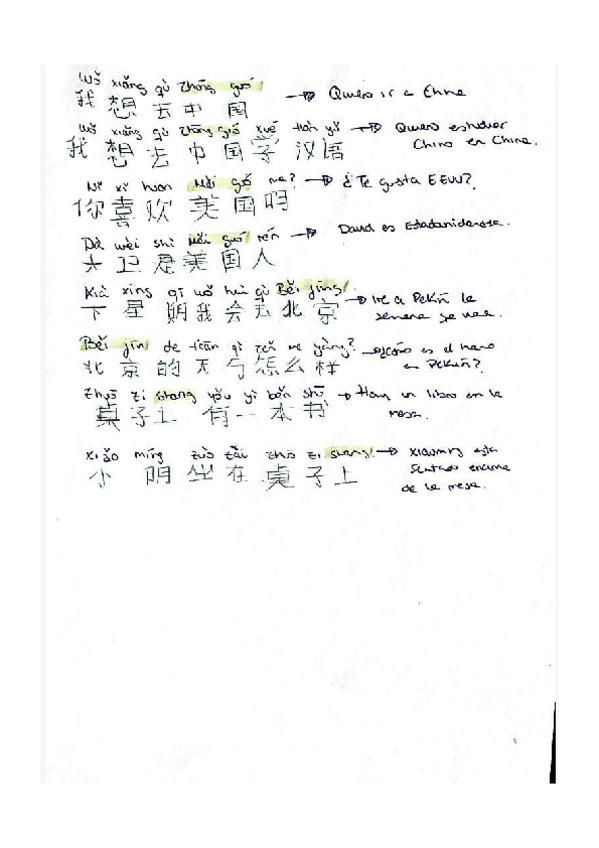 Wǒ xiǎng qù Zhōng guó
我想去中国 → Quiero ir a China
Wǒ xiǎng qù Zhōng guó xué Hàn yǔ
我想去中国学汉语 → Quiero estudiar Chino en China.
Ni xi huan Měi guó ma?
你喜欢美国吗 → ¿Te gusta EEUU?
Dà wèi shì Měi guó rén
大卫是美国人 → David es Estadounidense.
xīng qī wǒ huì qù Běi jīng
下星期我会去北京 → Iré a Pekín la semana que viene.
Běi jīn de tiān qì zěn me yàng?
北京的天气怎么样 en Pekín?
Zhuō zi shang yǒu yì běn shū
桌子上有一本书 → Hay un libro en la mesa.
xiǎo míng zuò zài zhuō zi shang
小阴坐在桌子上 → xiaoming está sentado encima de la mesa.